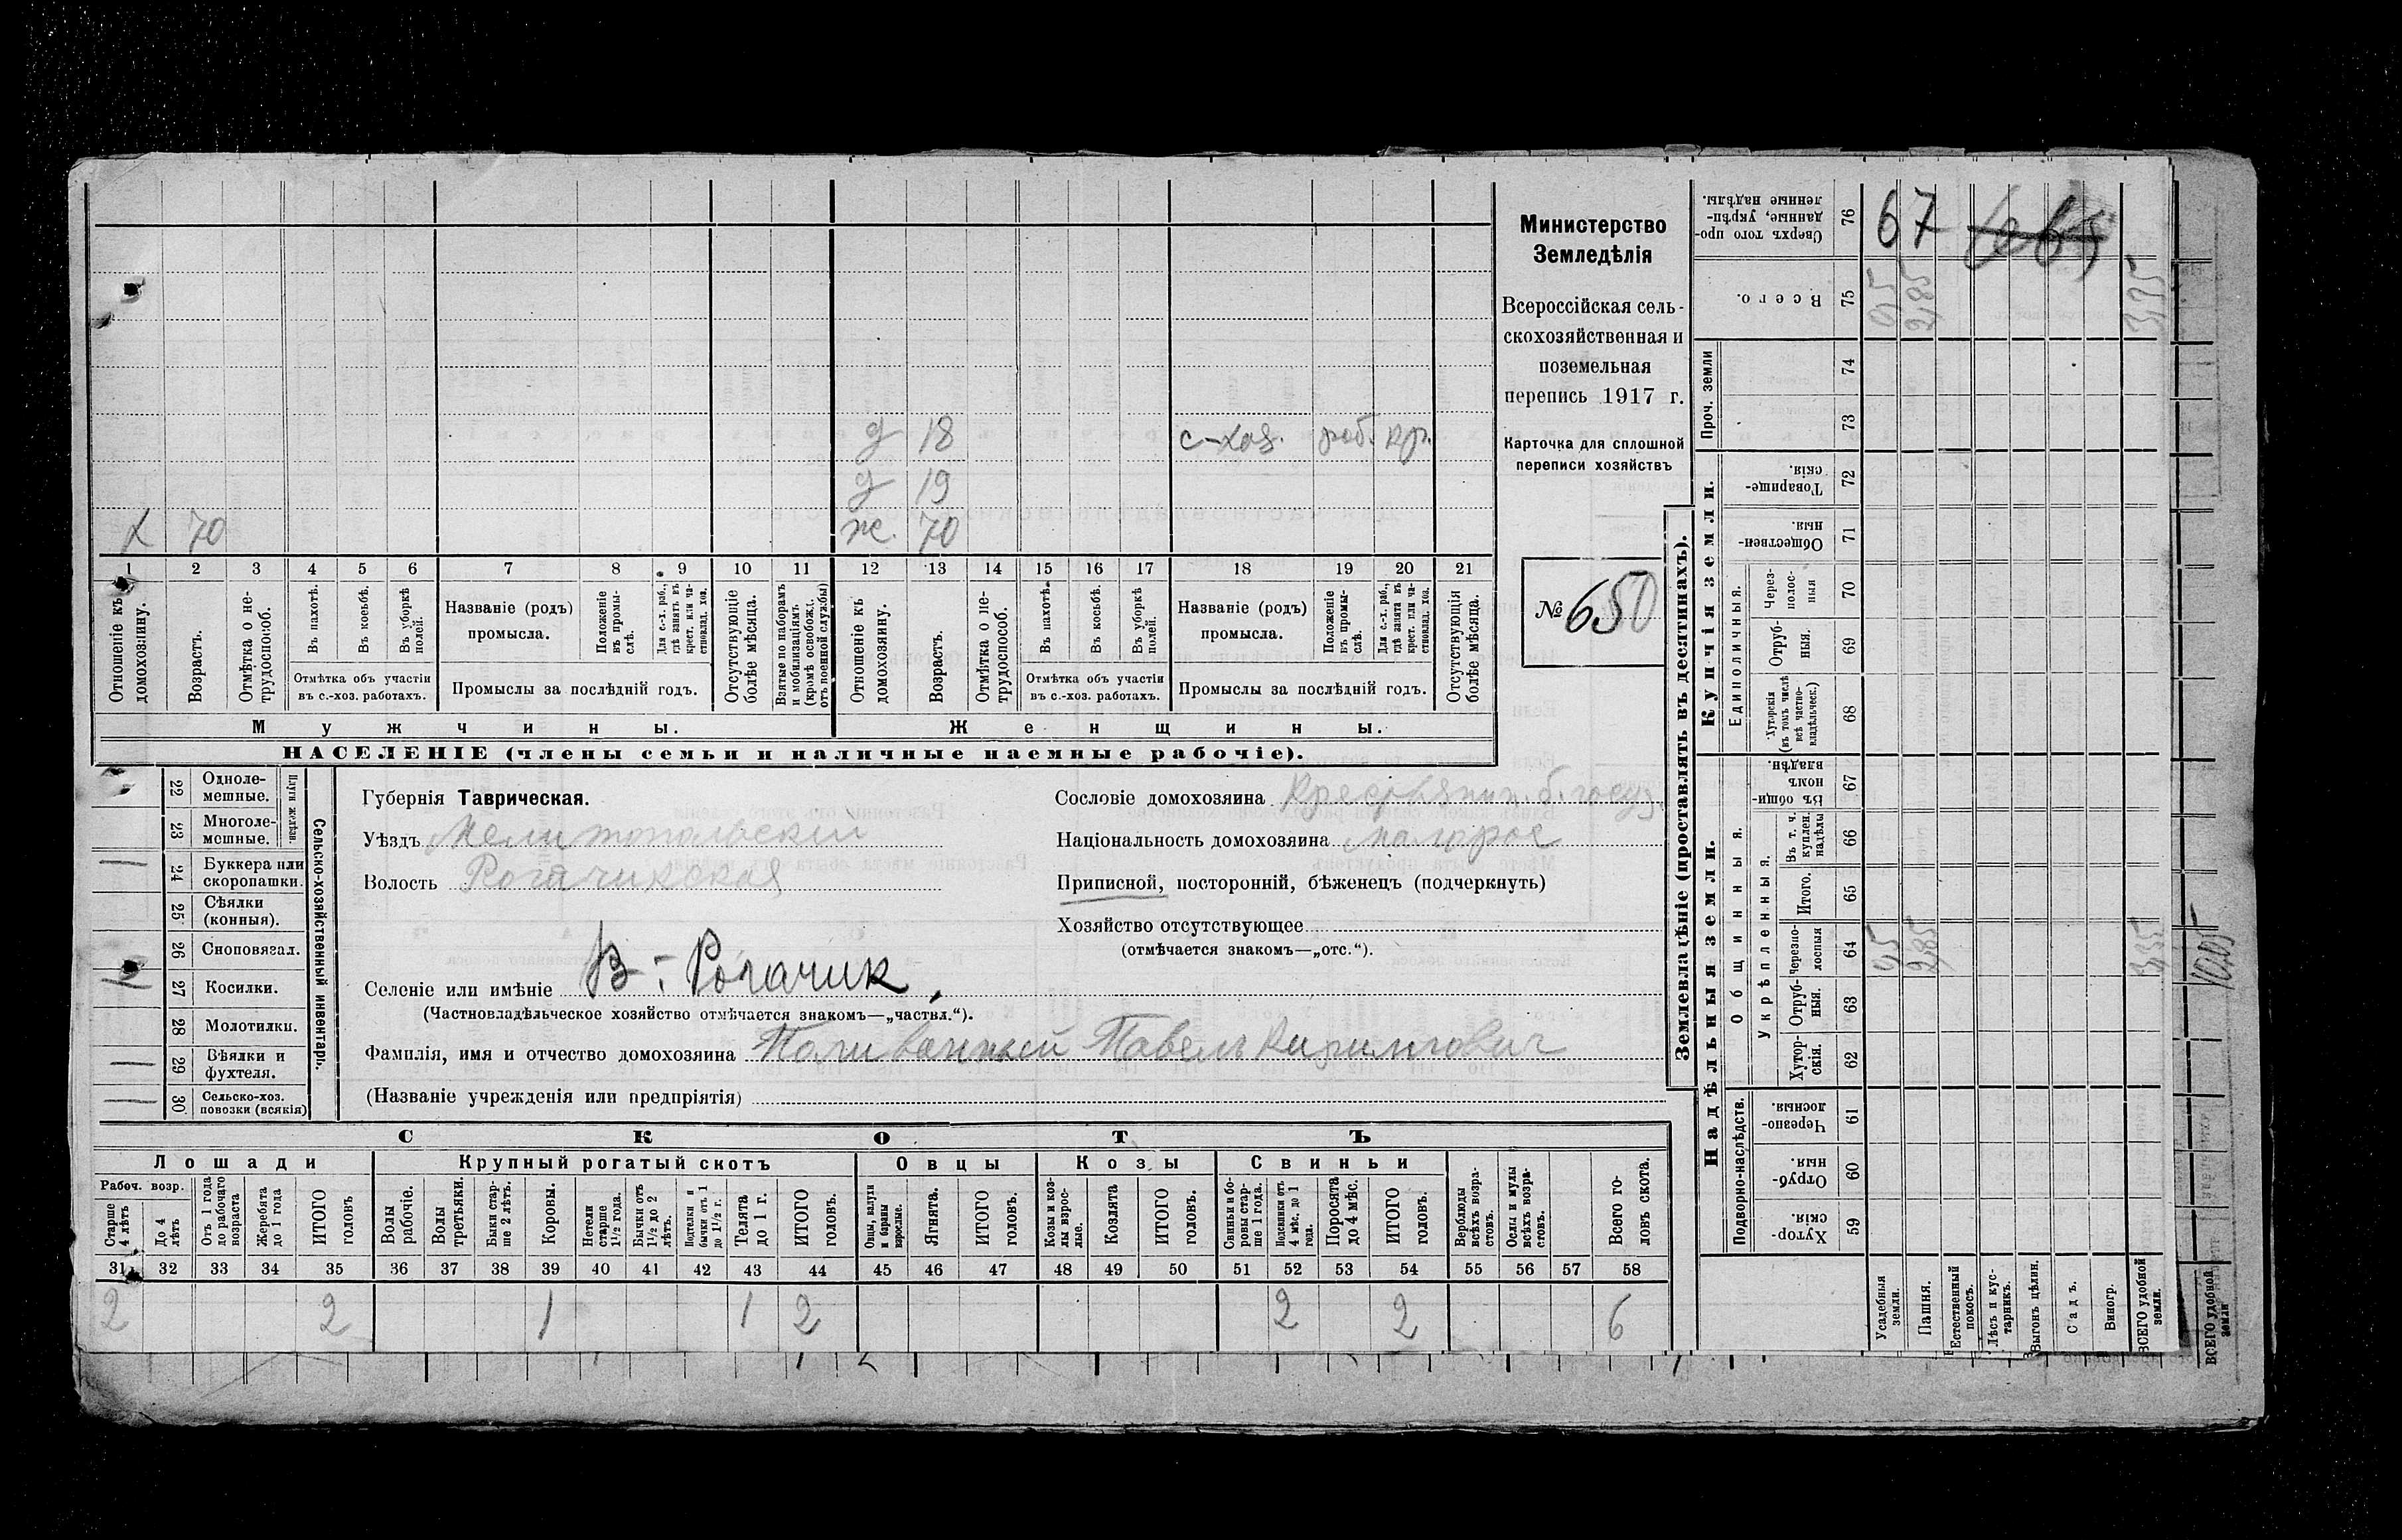 д 18 с-хоз. раб. кр.
д 19
х 70 ж. 70
1 2 3 4 5 6 7 8 9 10 11 12 13 14 15 16 17 18 19 20 21
Отношеніе къ домохозяину.
Возрастъ.
Отмѣтка о не-трудоспособ.
Въ пахотѣ.
Въ косьбѣ.
Въ уборкѣ полей.
Отмѣтка объ участіи
въ с.-хоз. работахъ.
Названіе (родъ)
промысла.
Положеніе въ промы-слѣ.
Для с.-х. раб., гдѣ занятъ въ крест. или ча-стновлад. хоз.
Промыслы за послѣдній годъ.
Отсутствующіе болѣе мѣсяца.
Взятые по наборамъ и мобилизаціямъ (кромѣ освобожд. отъ военной службы)
Отношеніе къ домохозяину.
Возрастъ.
Отмѣтка о не-трудоспособ.
Въ пахотѣ.
Въ косьбѣ.
Въ уборкѣ полей.
Отмѣтка объ участіи
въ с.-хоз. работахъ.
Названіе (родъ)
промысла.
Положеніе въ промы-слѣ.
Для с.-х. раб., гдѣ занята въ крест. или ча-стновлад. хоз.
Промыслы за послѣдній годъ.
Отсутствующія болѣе мѣсяца.
Мужчины. Женщины.
НАСЕЛЕНІЕ (члены семьи и наличные наемные рабочіе).
Министерство
Земледѣлія
Всероссійская сель-
скохозяйственная и
поземельная
перепись 1917 г.
Карточка для сплошной
переписи хозяйствъ
№ 650
Сельско-хозяйственный инвентарь.
Плуги желѣзн.
22 Одноле-мешные.
23 Многоле-мешные.
24 Буккера или скоропашки.
25 Сѣялки (конныя).
26 Сноповязал.
27 Косилки.
28 Молотилки.
29 Вѣялки и фухтеля.
30 Сельско-хоз. повозки (всякія)
Губернія Таврическая.
Уѣздъ Мелитопольскій
Волость Рогачикская
Сословіе домохозяина Крестьянин. б. госуд.
Національность домохозяина малорос
Приписной, посторонній, бѣженецъ (подчеркнуть)
Хозяйство отсутствующее
(отмѣчается знакомъ—„отс.“).
Селеніе или имѣніе В-. Рогачик.
(Частновладѣльческое хозяйство отмѣчается знакомъ—„частвл.“).
Фамилія, имя и отчество домохозяина Поливанный Павелъ Кирилович
(Названіе учрежденія или предпріятія)
СКОТЪ
Лошади Крупный рогатый скотъ Овцы Козы Свиньи
Рабоч. возр.
Старше 4 лѣтъ
До 4 лѣтъ
Отъ 1 года до рабочаго возраста
Жеребята до 1 года
ИТОГО головъ
Волы рабочіе.
Волы третьяки.
Быки стар-ше 2 лѣтъ.
Коровы.
Нетели старше 1½ года.
Бычки отъ 1½ до 2 лѣтъ.
Подтелки и бычки отъ 1 до 1½ г.
Телята до 1 г.
ИТОГО головъ.
Овцы, валухи и бараны взрослые.
Ягнята.
ИТОГО головъ.
Козы и коз-лы взрос-лые.
Козлята
ИТОГО головъ.
Свиньи и бо-ровы стар-ше 1 года.
Подсвинки отъ 4 мѣс. до 1 года.
Поросята до 4 мѣс.
ИТОГО головъ.
Верблюды всѣхъ возра-стовъ.
Ослы и мулы всѣхъ возра-стовъ.
Всего го-ловъ скота.
31 32 33 34 35 36 37 38 39 40 41 42 43 44 45 46 47 48 49 50 51 52 53 54 55 56 57 58
2 2 1 1 2 2 2 6
Землевладѣніе (проставлять въ десятинахъ).
Сверхъ того про-данные, укрѣп-ленные надѣлы. 76 67
Всего. 75
Проч. земли 74 73
Купчія земли.
Товарище-скія. 72
Обществен-ныя. 71
Единоличныя.
Через-полос-ныя 70
Отруб-ныя. 69
Хуторскія (въ томъ числѣ всѣ частно-владѣльческ.) 68
Надѣльныя земли.
Общинныя.
Въ общин-номъ владѣн. 67
Укрѣпленныя.
Въ т. ч. куплен. надѣлы 66
Итого. 65
Черезпо-лосныя 64
Отруб-ныя. 63
Хутор-скія. 62
Подворно-наслѣдств.
Черезпо-лосныя. 61
Отруб-ныя. 60
Хутор-скія. 59
Усадебныя земли.
Пашня.
Естественный покосъ.
Лѣсъ и кус-тарникъ.
Выгонъ цѣлин.
Садъ.
Виногр.
ВСЕГО удобной земли.
ВСЕГО удобной земли